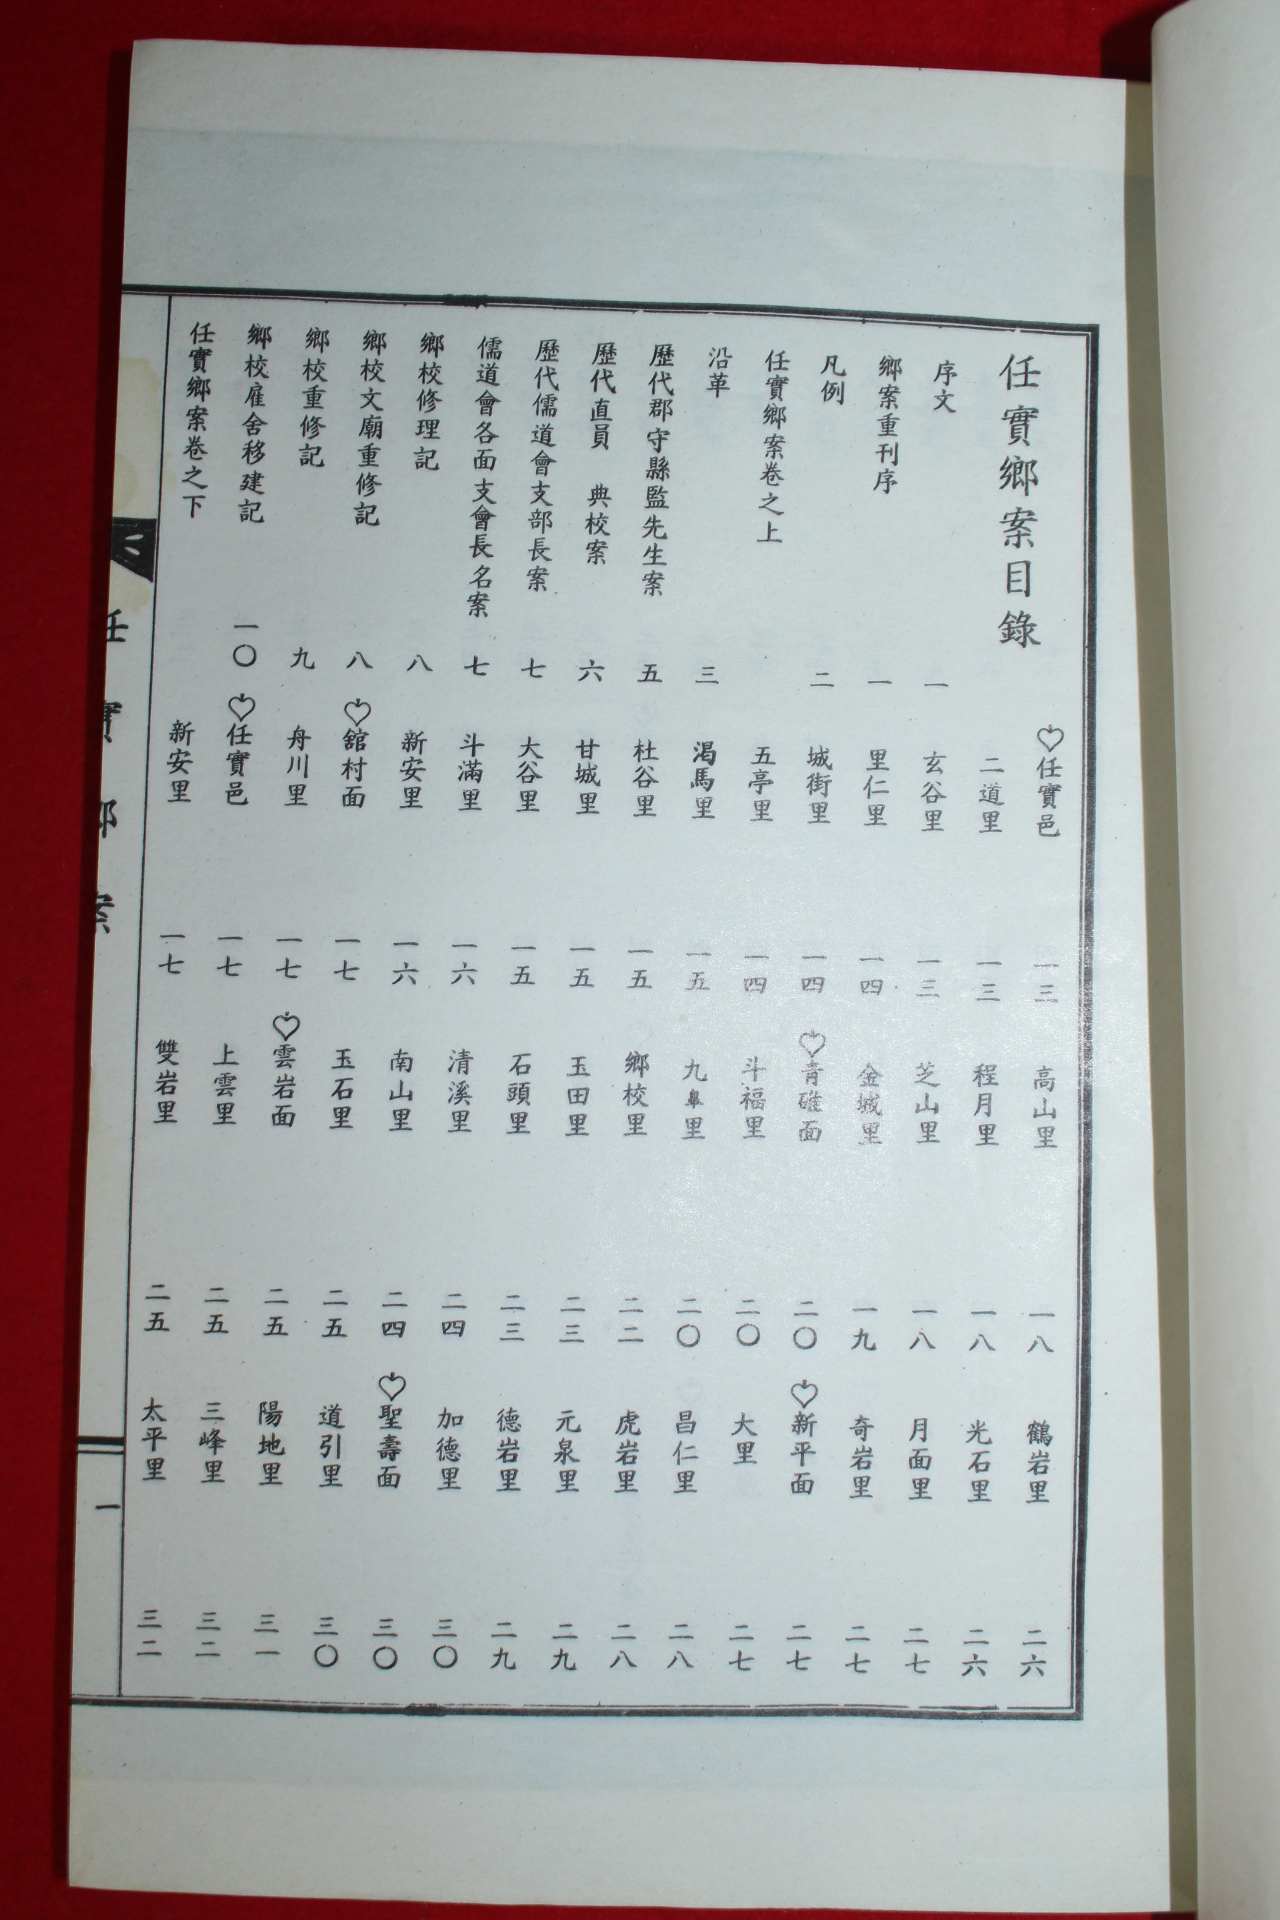 任實鄕案目錄
序文 一
鄕案重刊序 一
凡例 二
任實鄕案卷之上
沿革 三
歷代郡守縣監先生案 五
歷代直員 典校案 六
歷代儒道會支部長案 七
儒道會各面支會長名案 七
鄕校修理記 八
鄕校文廟重修記 八
鄕校重修記 九
鄕校雇舍移建記 一〇
任實鄕案卷之下
任實邑 一三
二道里 一三
玄谷里 一三
里仁里 一四
城街里 一四
五亭里 一四
渴馬里 一五
杜谷里 一五
甘城里 一五
大谷里 一五
斗滿里 一六
新安里 一六
舘村面 一七
舟川里 一七
任實邑 一七
新安里 一七
高山里 一八
程月里 一八
芝山里 一八
金城里 一九
青碓面 二〇
斗福里 二〇
九皐里 二〇
鄕校里 二二
玉田里 二三
石頭里 二三
清溪里 二四
南山里 二四
玉石里 二五
雲岩面 二五
上雲里 二五
雙岩里 二五
鶴岩里 二六
光石里 二六
月面里 二七
奇岩里 二七
新平面 二七
大里 二七
昌仁里 二八
虎岩里 二八
元泉里 二九
德岩里 二九
加德里 三〇
聖壽面 三〇
道引里 三〇
陽地里 三一
三峰里 三二
太平里 三二
任實鄕案
一